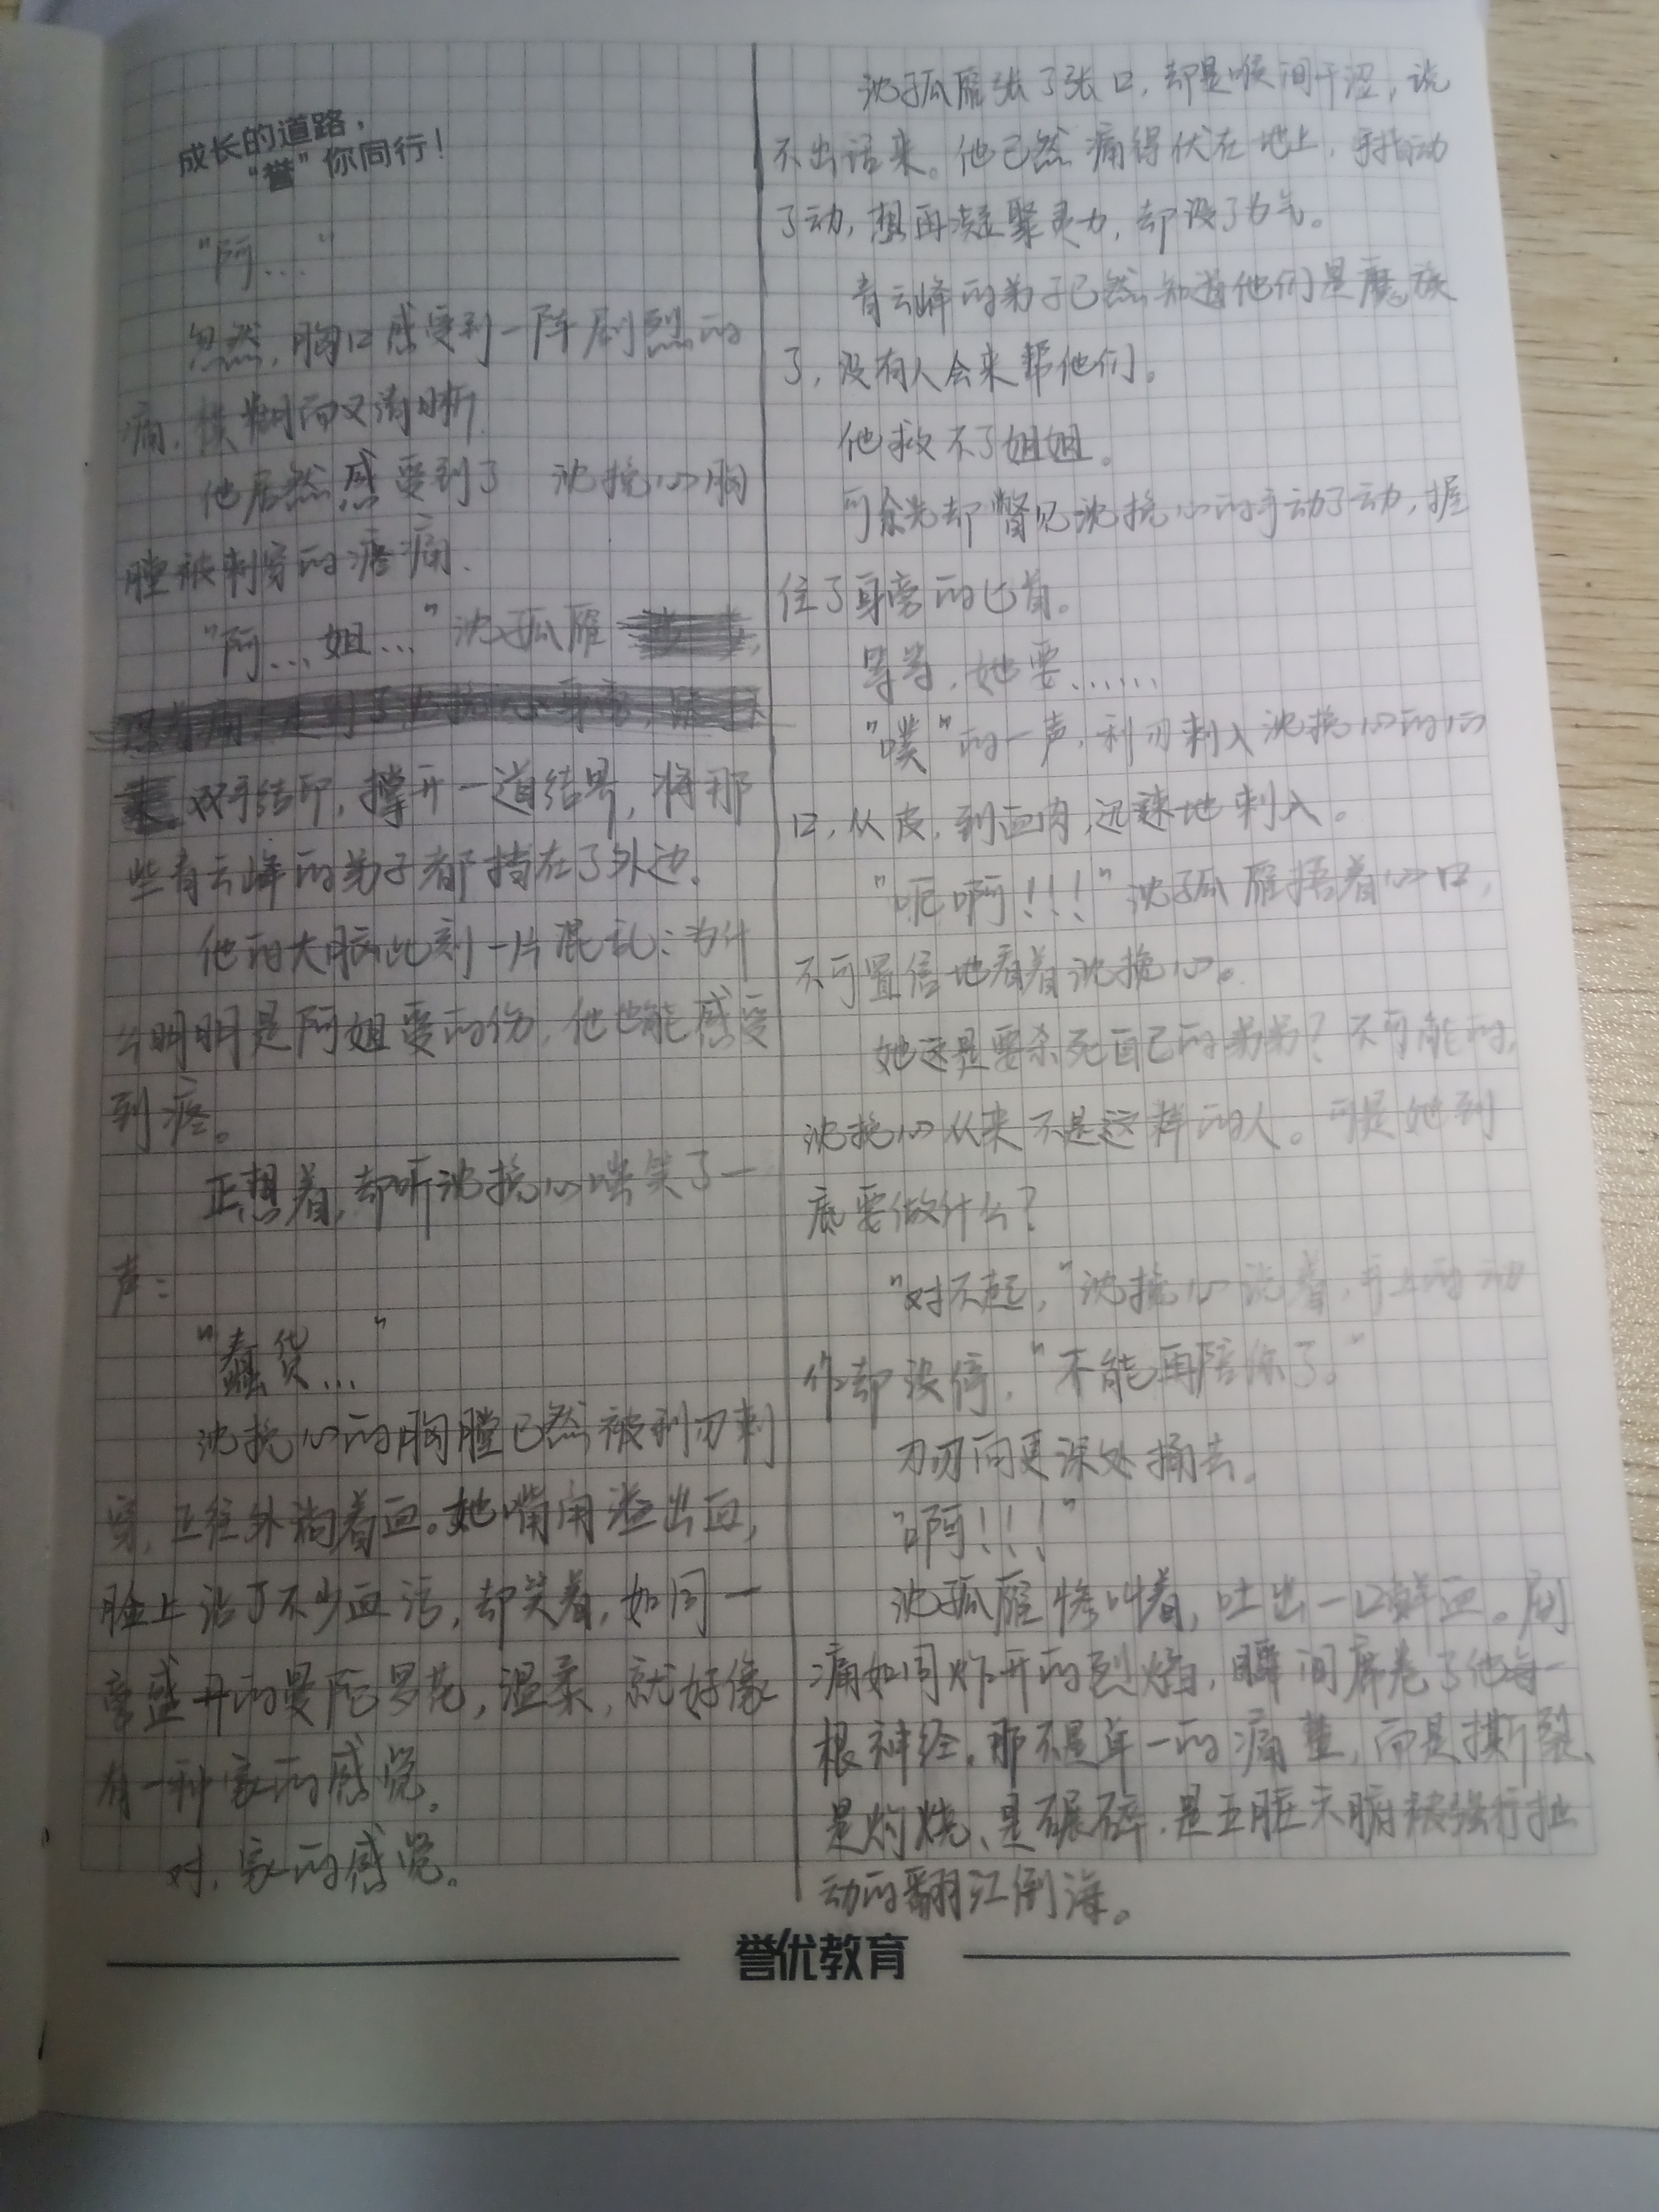 成长的道路，
“誉”你同行！
“阿…”
忽然，胸口感受到一阵剧烈的
痛，模糊而又清晰.
他居然感受到了 沈挽心胸
膛被刺穿的疼痛.
“阿…姐…”沈孤雁
双手结印，撑开一道结界，将那
些青云峰的弟子都挡在了外边.
他的大脑此刻一片混乱：为什
么明明是阿姐受的伤，他也能感受
到疼。
正想着，却听沈挽心嗤笑了一
声：
“蠢货…”
沈挽心的胸膛已然被利刃刺
穿，正往外淌着血。她嘴角溢出血，
脸上沾了不少血污，却笑着，如同一
盛开的曼陀罗花，温柔，就好像
有一种家的感觉。
对，家的感觉。
沈孤雁张了张口，却是喉间干涩，说
不出话来。他已然痛得伏在地上，手指动
了动，想再凝聚灵力，却没了力气。
青云峰的弟子已然知道他们是魔族
了，没有人会来帮他们。
他救不了姐姐。
可余光却瞥见沈挽心的手动了动，握
住了身旁的匕首。
等等，她要……
“噗”的一声，利刃刺入沈挽心的心
口，从皮，到血肉，迅速地刺入。
“呃啊！！！”沈孤雁捂着心口，
不可置信地看着沈挽心。
她这是要杀死自己的弟弟？不可能的，
沈挽心从来不是这样的人。可是她到
底要做什么？
“对不起，”沈挽心说着，手上的动
作却没停，“不能再陪你了。”
刀刃向更深处捅去。
“啊！！！”
沈孤雁惨叫着，吐出一口鲜血。剧
痛如同炸开的烈焰，瞬间席卷了他每一
根神经。那不是单一的痛楚，而是撕裂、
是灼烧、是碾碎，是五脏六腑被强行扯
动的翻江倒海。
誉优教育